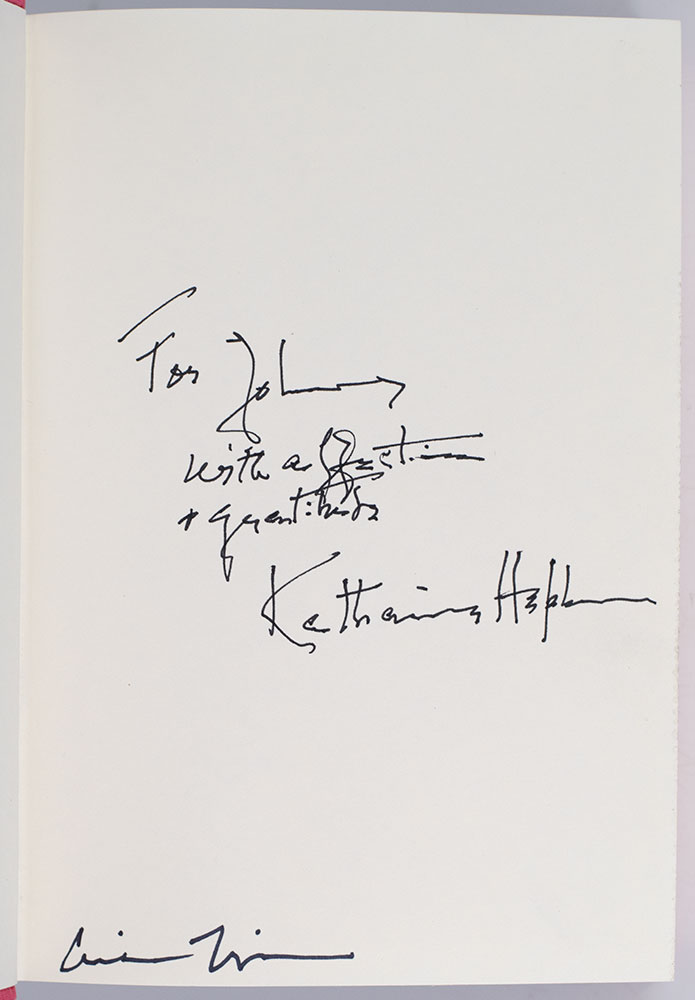 For Johnny
with affection
+ gratitude
Katharine Hepburn